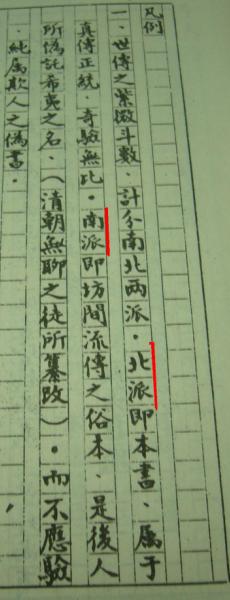 凡例
一、世傳之紫微斗數、計分南北兩派。北派即本書、属于
真傳正統、奇驗無比。南派即坊間流傳之俗本、是後人
所偽託希夷之名、（清朝無聊之徒所纂改）。而不應驗
、純属欺人之偽書。